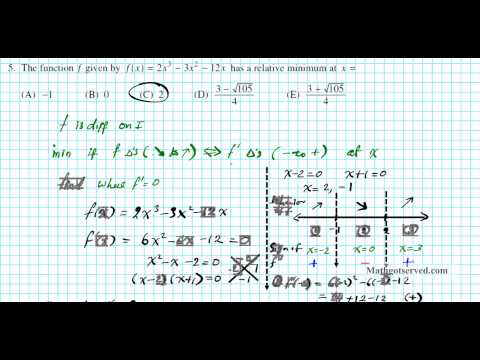 5. The function f given by f(x) = 2x³ − 3x² − 12x has a relative minimum at x =
(A) −1 (B) 0 (C) 2 (D) (3 − √105)/4 (E) (3 + √105)/4
f is diff on I
min if f Δ's (↘ to ↗) ⇔ f' Δ's (− to +) at x
where f' = 0
x-2=0 x+1=0
x = 2, -1
f(x) = 2x³-3x²-12x
f'(x) = 6x²-6x-12=0
x²-x-2=0
(x-2)(x+1)=0
↗ ↘ ↗
-1 2
x=-2 x=0 x=3
f' + − +
Mathgotserved.com
+12-12 (+)